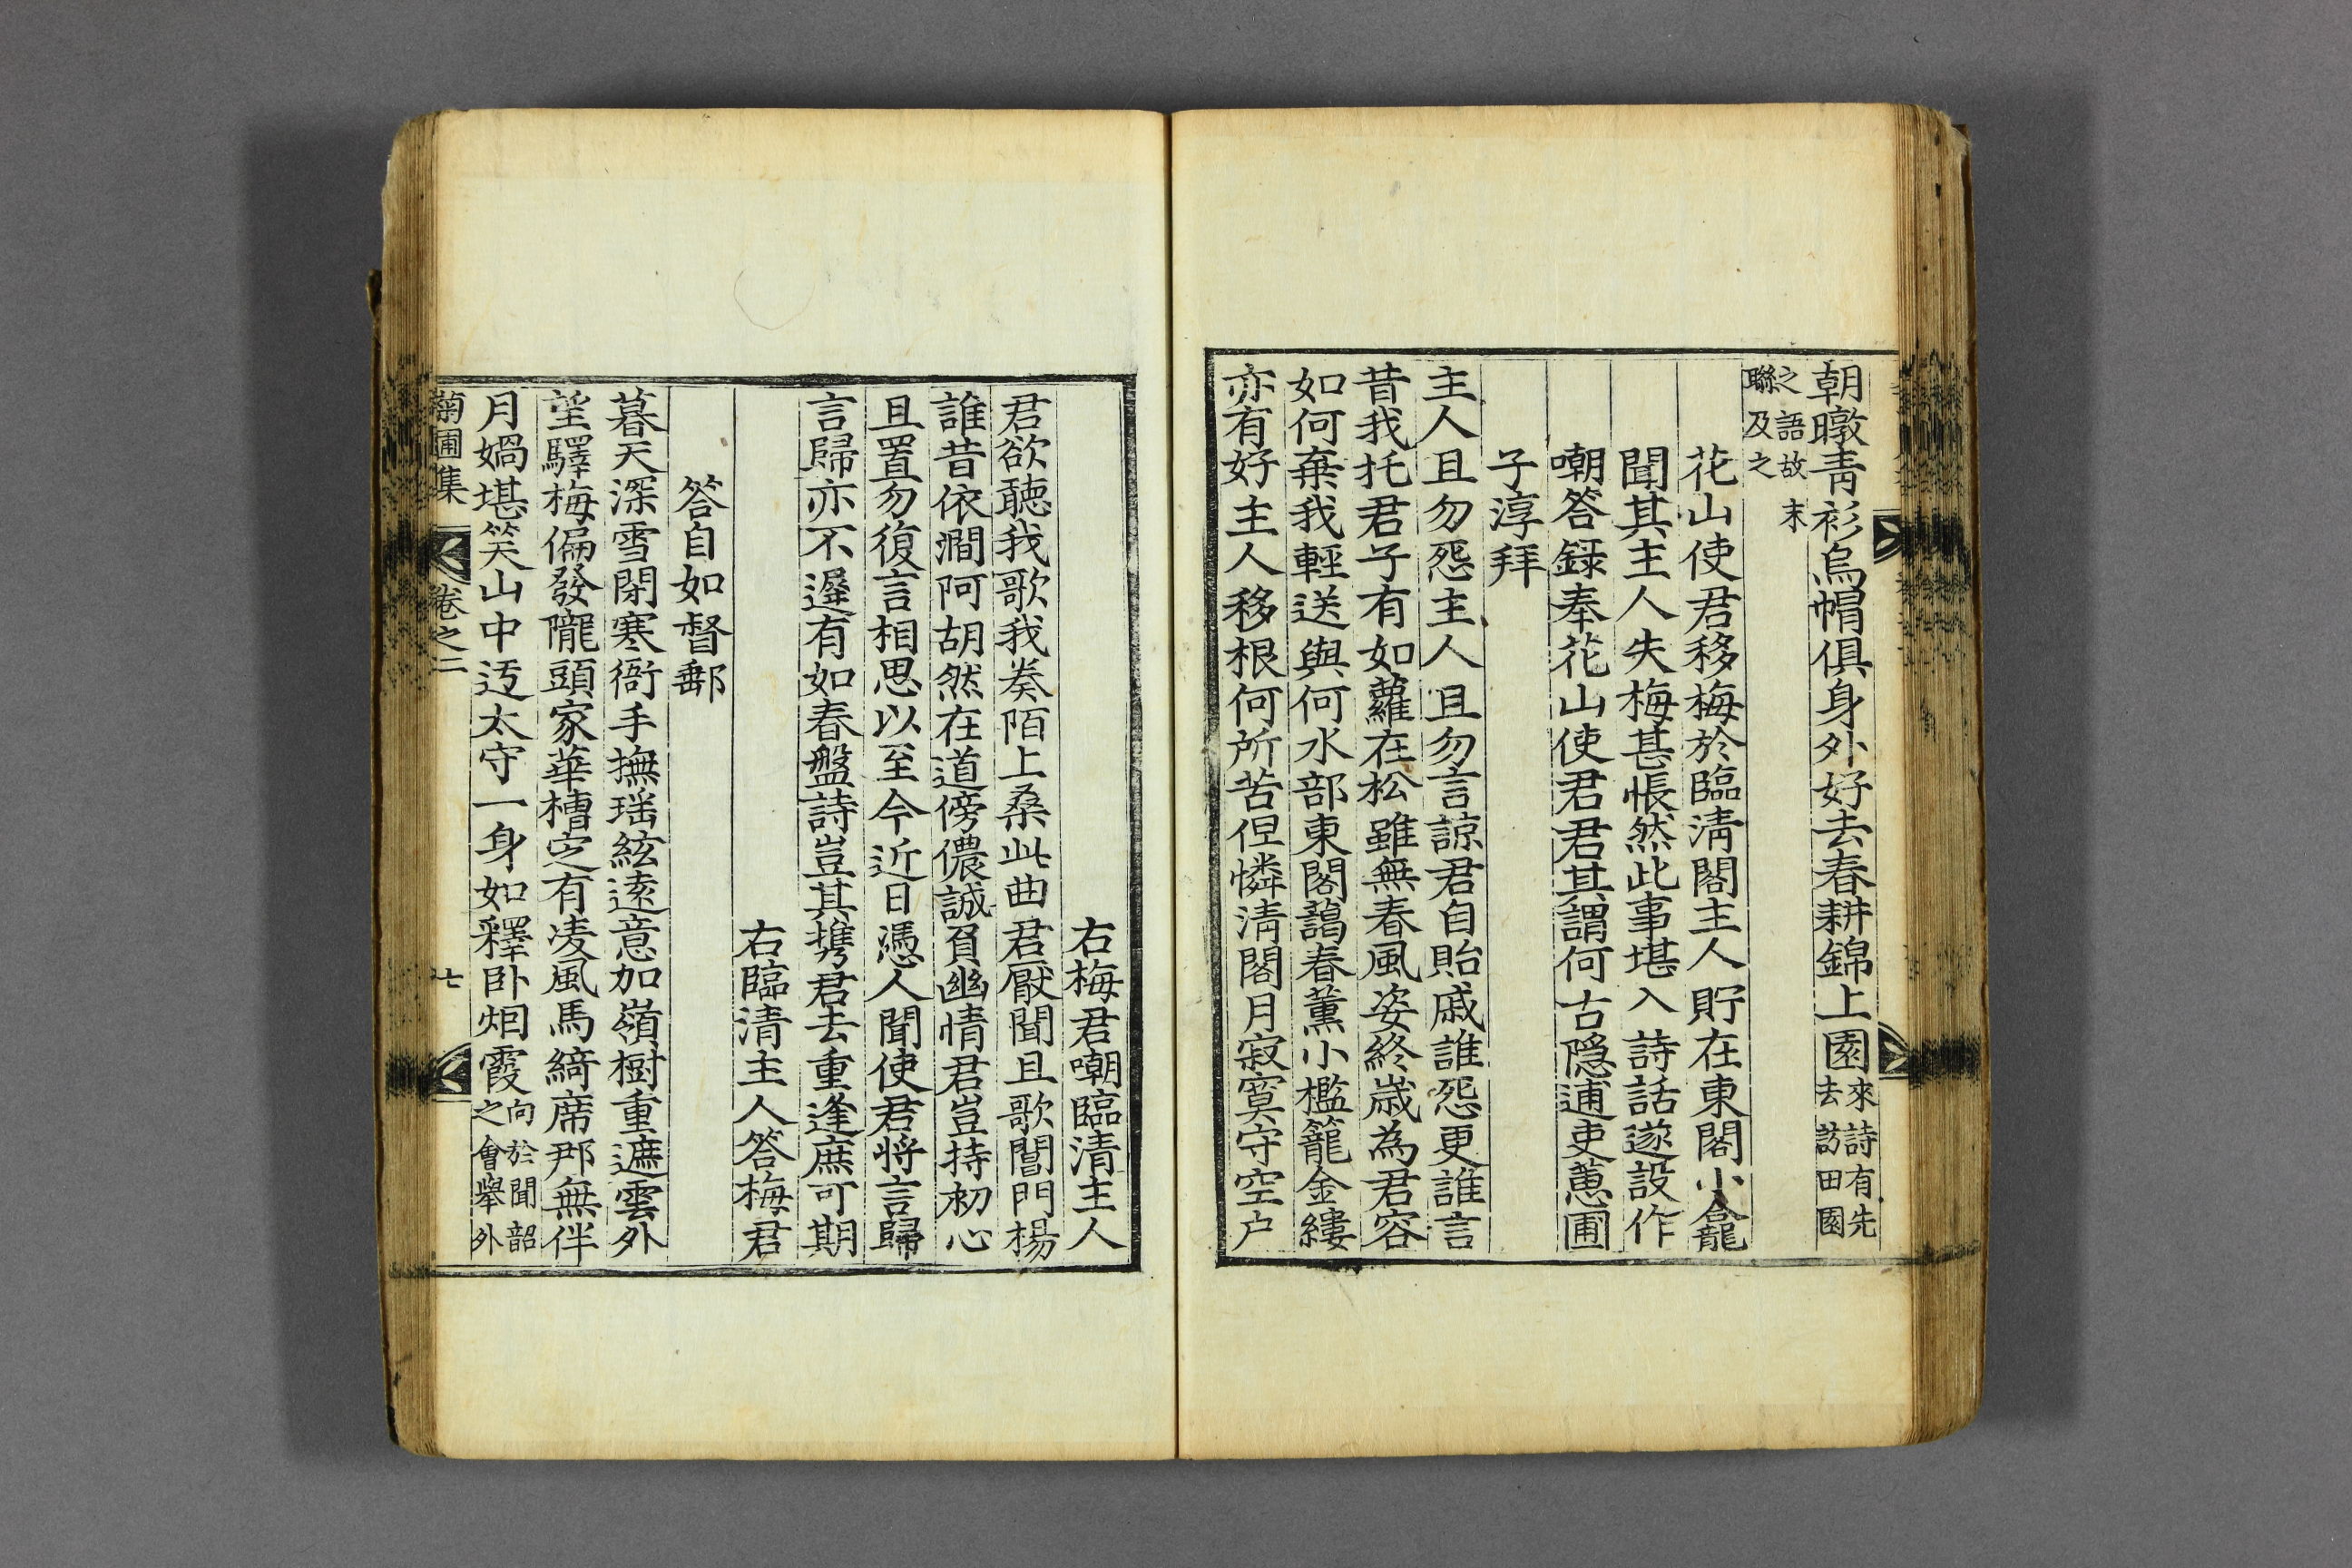 朝暾靑衫烏帽俱身外好去春耕錦上園來詩有先去訪田園
之語故末聯及之
花山使君移梅於臨淸閣主人貯在東閣小龕
聞其主人失梅甚悵然此事堪入詩話遂設作
嘲答録奉花山使君君其謂何古隠逋吏蕙圃
子淳拜
主人且勿怨主人且勿言諒君自貽戚誰怨更誰言
昔我托君子有如蘿在松雖無春風姿終歳為君容
如何棄我輕送與何水部東閣藹春薫小檻籠金縷
亦有好主人移根何所苦但憐淸閣月寂寞守空户
右梅君嘲臨清主人
君欲聽我歌我奏陌上桑此曲君厭聞且歌閶門楊
誰昔依澗阿胡然在道傍儂誠負幽情君豈持初心
且置勿復言相思以至今近日憑人聞使君將言歸
言歸亦不遲有如春盤詩豈其携君去重逢庶可期
右臨清主人答梅君
答自如督郵
暮天深雪閉寒衙手撫瑶絃逺意加嶺樹重遮雲外
望驛梅偏發隴頭家華槽定有凌風馬綺席那無伴
月媧堪笑山中迃太守一身如釋卧烟霞向於聞韶之會舉外
菊圃集 卷之二 七